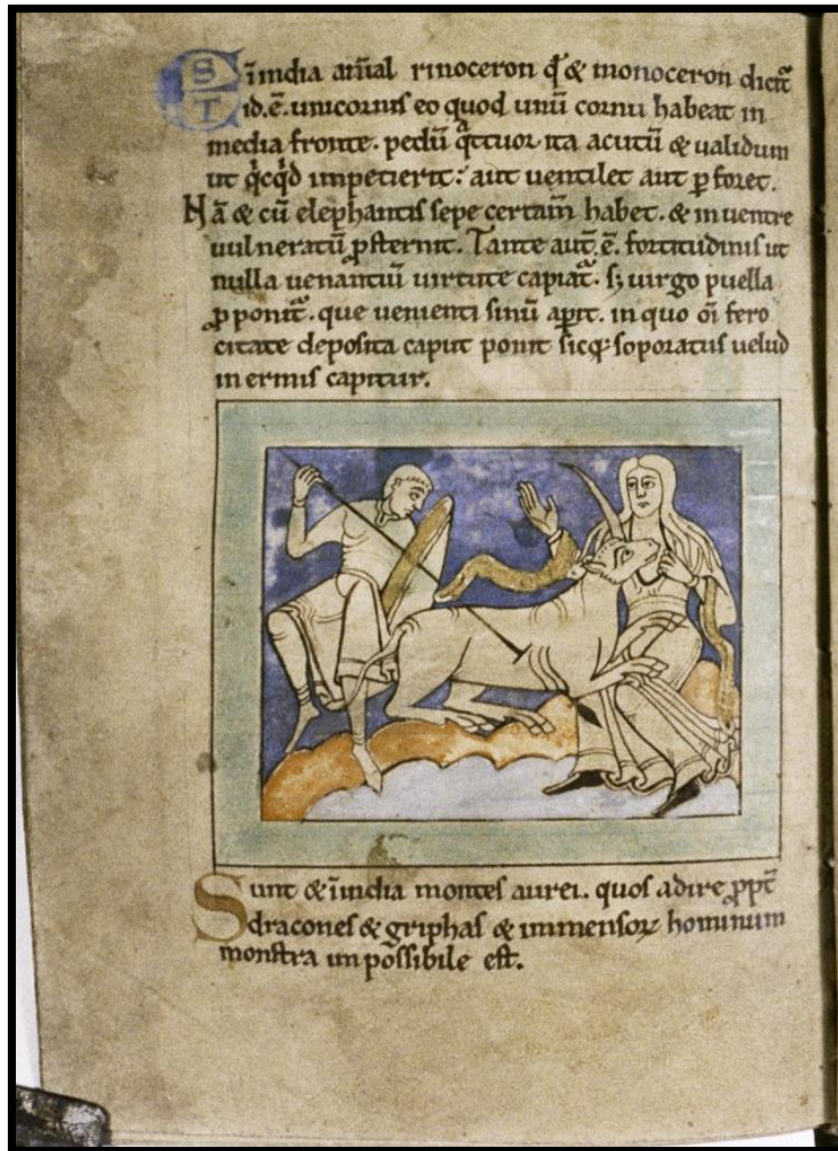 EST īindia aīal rinoceron q̄ & monoceron dicit᷑
id.ē. unicornis eo quod unū cornu habeat in
media fronte. pedū qᷓttuor. ita acutū & ualidum
ut qͥcqͥd impetierit: aut uentilet aut ꝑforet.
Nā & cū elephantis sepe certam̄ habet. & in uentre
uulneratū ꝓsternit. Tante aut̄. ē. fortitudinis ut
nulla uenantiū uirtute capiat᷑. sꝫ uirgo puella
ꝓponit᷑. que uenienti sinū aꝑit. in quo oī fero
citate deposita caput ponit sicqꝫ soporatus uelud
inermis capitur.
Sunt & īindia montes aurei. quos adire ꝓpt̄
dracones & griphas & immensoꝝ hominum
monstra impossibile est.